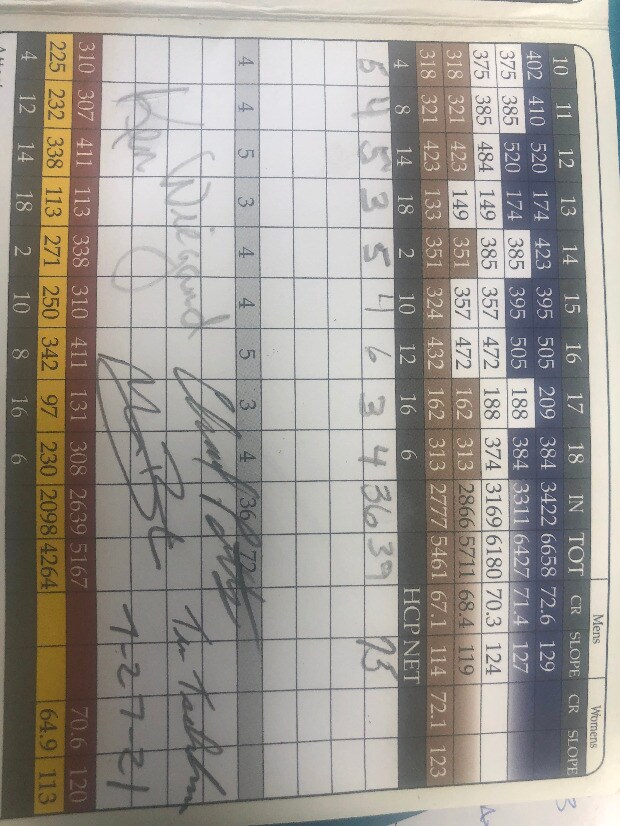 Mens Womens
10 11 12 13 14 15 16 17 18 IN TOT CR SLOPE CR SLOPE
402 410 520 174 423 395 505 209 384 3422 6658 72.6 129
375 385 520 174 385 395 505 188 384 3311 6427 71.4 127
375 385 484 149 385 357 472 188 374 3169 6180 70.3 124
318 321 423 149 351 357 472 162 313 2866 5711 68.4 119
318 321 423 133 351 324 432 162 313 2777 5461 67.1 114 72.1 123
4 8 14 18 2 10 12 16 6 HCP NET
5 4 5 3 5 4 6 3 4 36 39 75
4 4 5 3 4 4 5 3 4 36 72
Wiegand
Ken
7-27-21
310 307 411 113 338 310 411 131 308 2639 5167 70.6 120
225 232 338 113 271 250 342 97 230 2098 4264 64.9 113
4 12 14 18 2 10 8 16 6